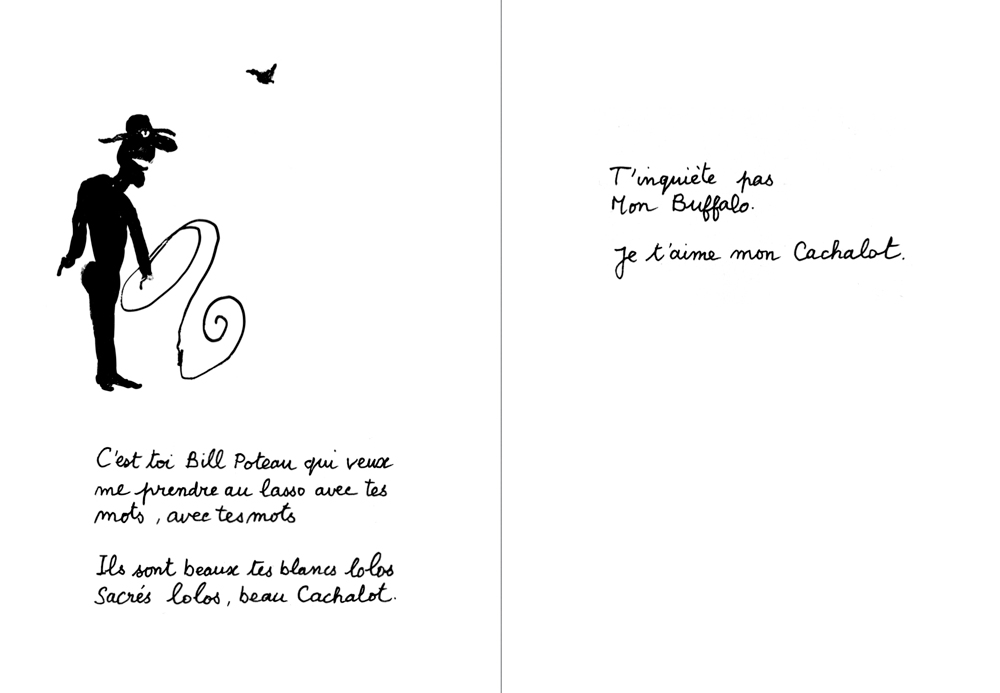 C'est toi Bill Poteau qui veux
me prendre au lasso avec tes
mots, avec tes mots
Ils sont beaux tes blancs lolos
Sacrés lolos, beau Cachalot.
T'inquiète pas
Mon Buffalo.
Je t'aime mon Cachalot.